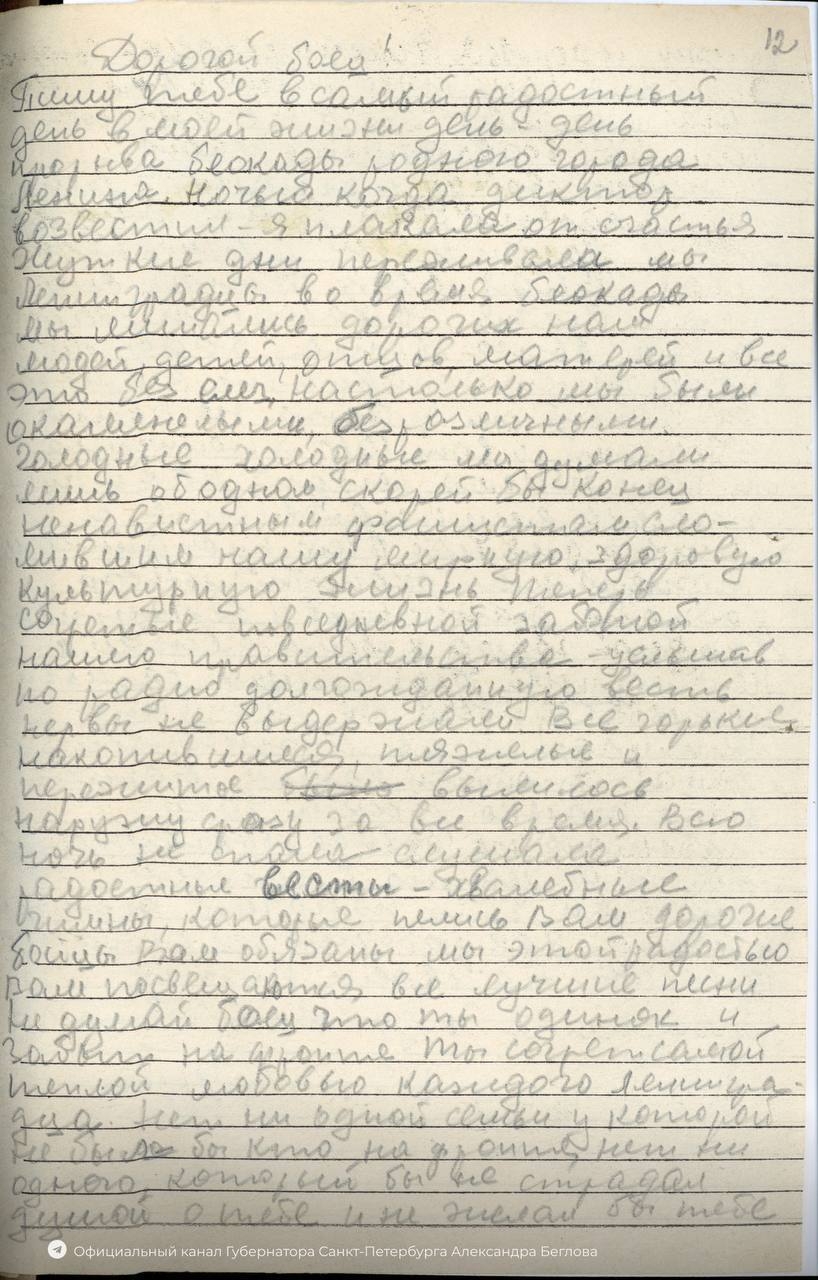 12
Дорогой боец!
Пишу тебе в самый радостный
день в моей жизни день - день
прорыва блокады родного города
Ленина. Ночью когда диктор
возвестил - я плакала от счастья
Жуткие дни переживала мы
Ленинградцы во время блокады
мы лишались дорогих нам
людей, детей, отцов, матерей и все
это без слез, настолько мы были
окаменелыми, безразличными.
Голодные холодные мы думали
лишь об одном, скорей бы конец
ненавистным фашистам, сло-
мившим нашу мирную, здоровую
культурную жизнь Теперь
согретые повседневной заботой
нашего правительства - услышав
по радио долгожданную весть
нервы не выдержали Все горькие,
накопившиеся, тяжелые и
пережитое было вылилось
наружу сразу за все время. Всю
ночь не спала слушала
радостные вести - хвалебные
гимны, которые пелись Вам дорогие
бойцы Вам обязаны мы этой радостью
Вам посвещаются все лучшие песни
Не думай боец что ты одинок и
забыт на фронте Ты согрет самой
теплой любовью каждого ленингра-
дца. Нет ни одной семьи у которой
не было бы кто на фронте, нет ни
одного, который бы не страдал
душой о тебе и не желал бы тебе
Официальный канал Губернатора Санкт-Петербурга Александра Беглова